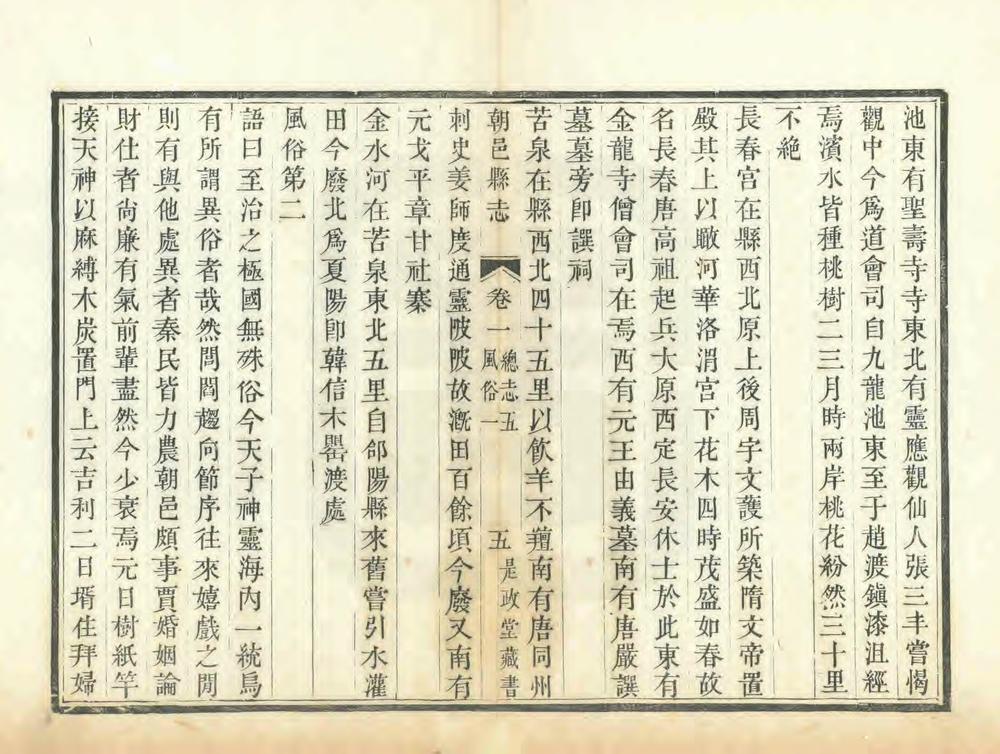 池東有聖壽寺寺東北有靈應觀仙人張三丰嘗愒
觀中今爲道會司自九龍池東至于趙渡鎭漆沮經
焉濱水皆種桃樹二三月時兩岸桃花紛然三十里
不絶
長春宮在縣西北原上後周宇文護所築隋文帝置
殿其上以瞰河華洛渭宮下花木四時茂盛如春故
名長春唐高祖起兵大原西定長安休士於此東有
金龍寺僧會司在焉西有元王由義墓南有唐嚴譔
墓墓旁卽譔祠
苦泉在縣西北四十五里以飮羊不羶南有唐同州
朝邑縣志 卷一 總志五 風俗一 五 是政堂藏書
刺史姜師度通靈陂陂故漑田百餘頃今廢又南有
元戈平章甘社寨
金水河在苦泉東北五里自郃陽縣來舊嘗引水灌
田今廢北爲夏陽卽韓信木罌渡處
風俗第二
語曰至治之極國無殊俗今天子神靈海內一統烏
有所謂異俗者哉然閭閻趨向節序往來嬉戲之閒
則有與他處異者秦民皆力農朝邑頗事賈婚姻論
財仕者尙廉有氣前輩盡然今少衰焉元日樹紙竿
接天神以麻縛木炭置門上云吉利二日壻住拜婦